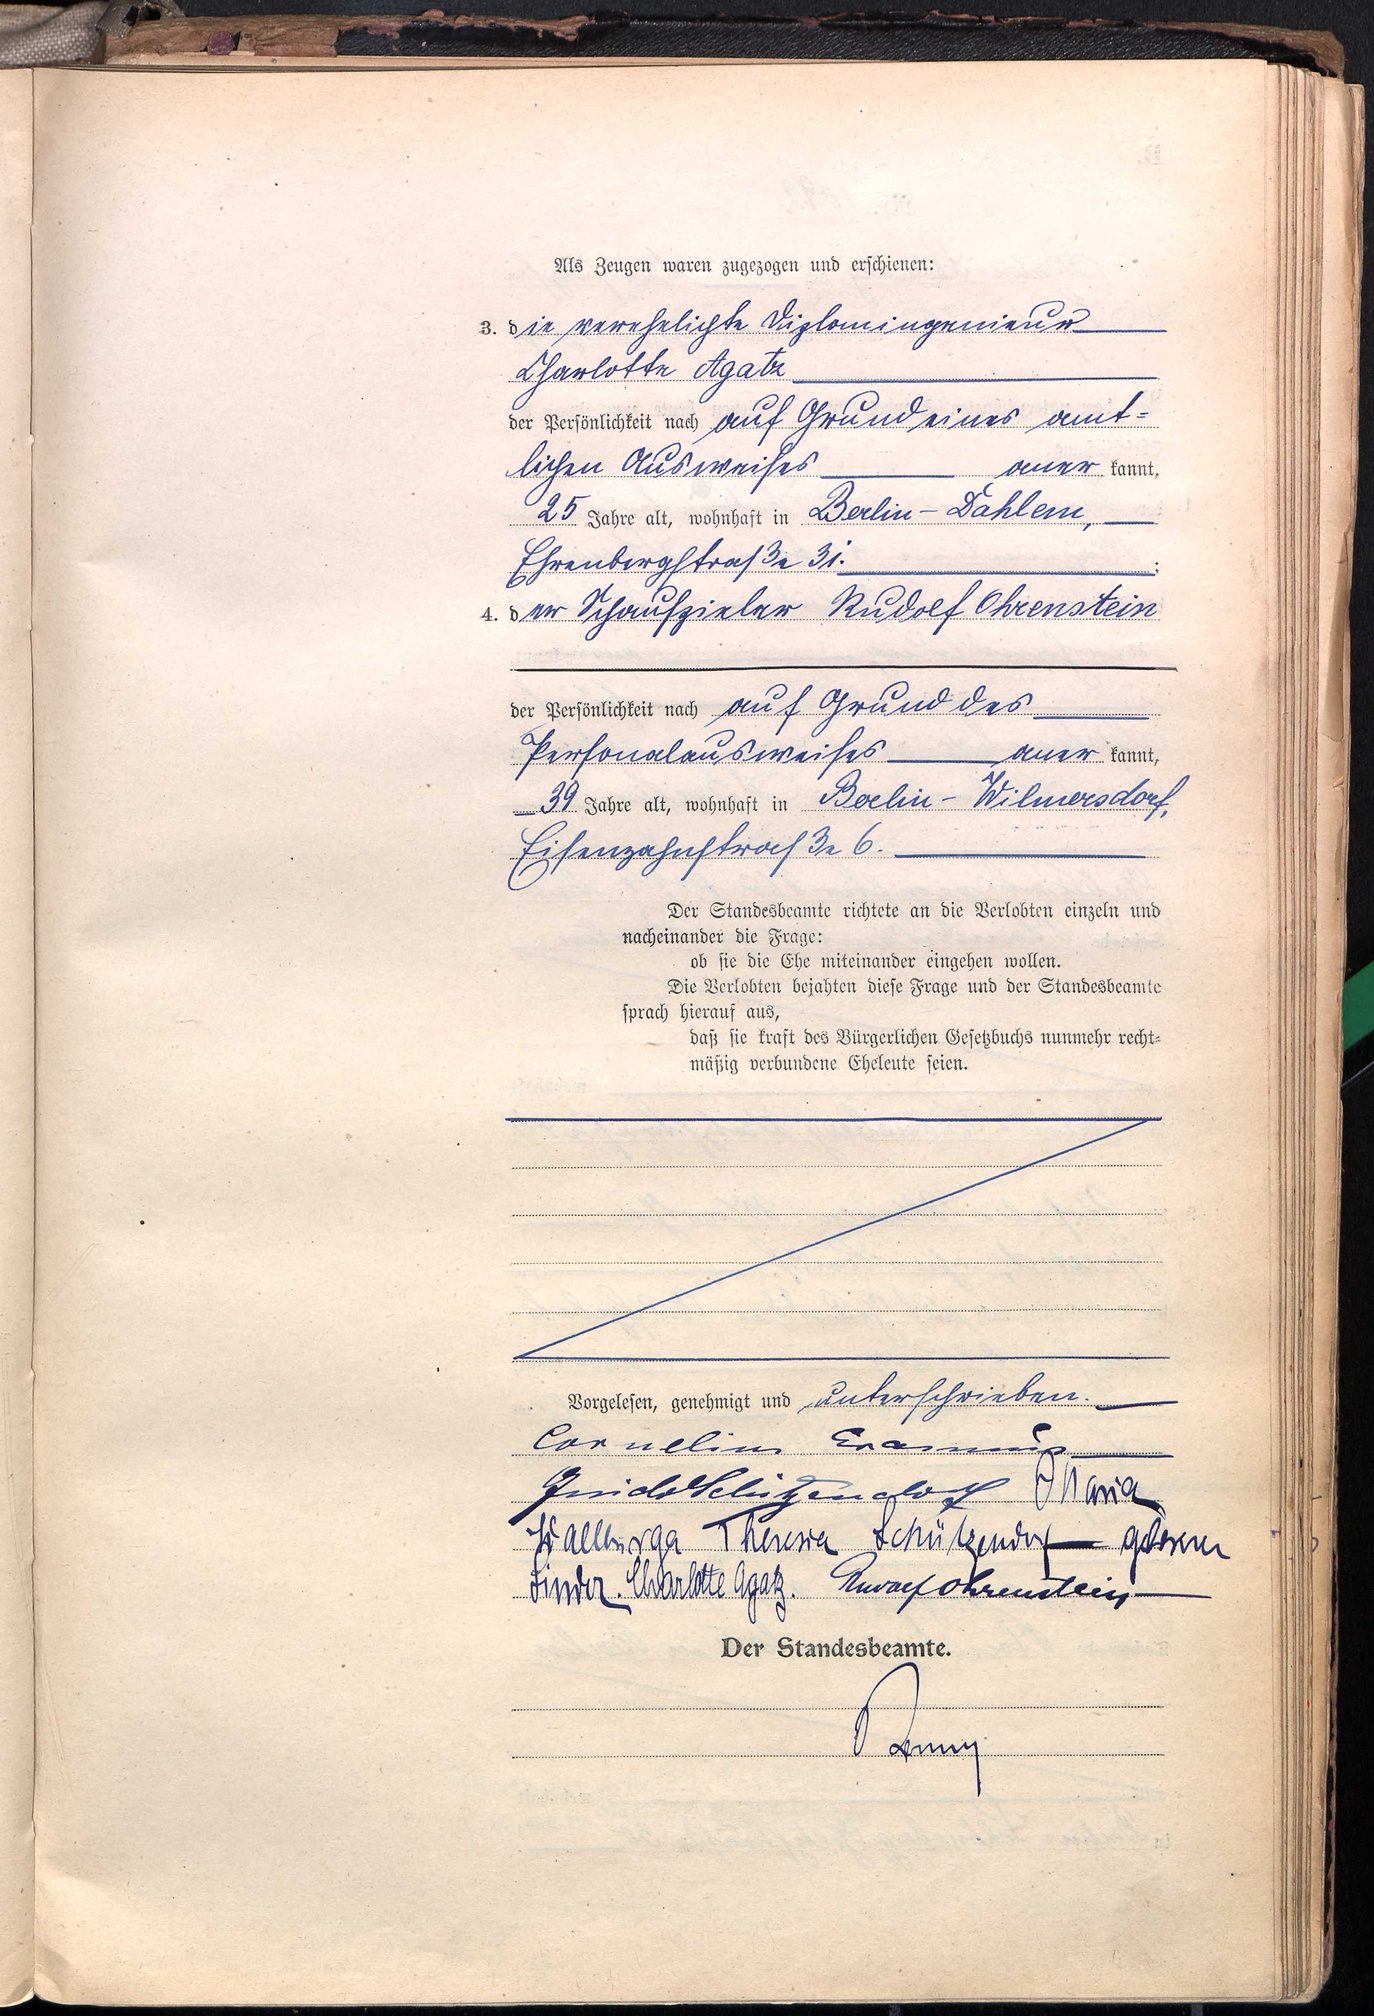 Als Zeugen waren zugezogen und erschienen:
3. die verehelichte Diplomingenieur
Charlotte Agatz
der Persönlichkeit nach auf Grund eines amt=
lichen Ausweises aner kannt,
25 Jahre alt, wohnhaft in Berlin-Dahlem,
Ehrenbergstraße 31. ;
4. der Schauspieler Rudolf Ohrenstein
der Persönlichkeit nach auf Grund des
Personalausweises aner kannt,
39 Jahre alt, wohnhaft in Berlin-Wilmersdorf,
Eisenzahnstraße 6.
Der Standesbeamte richtete an die Verlobten einzeln und
nacheinander die Frage:
ob sie die Ehe miteinander eingehen wollen.
Die Verlobten bejahten diese Frage und der Standesbeamte
sprach hierauf aus,
daß sie kraft des Bürgerlichen Gesetzbuchs nunmehr recht=
mäßig verbundene Eheleute seien.
Vorgelesen, genehmigt und unterschrieben.
Cornelius Erasmus
Guido Schützendorf Maria
Wallburga Theresia Schützendorf geborene
Charlotte Agatz. Rudolf Ohrenstein
Der Standesbeamte.